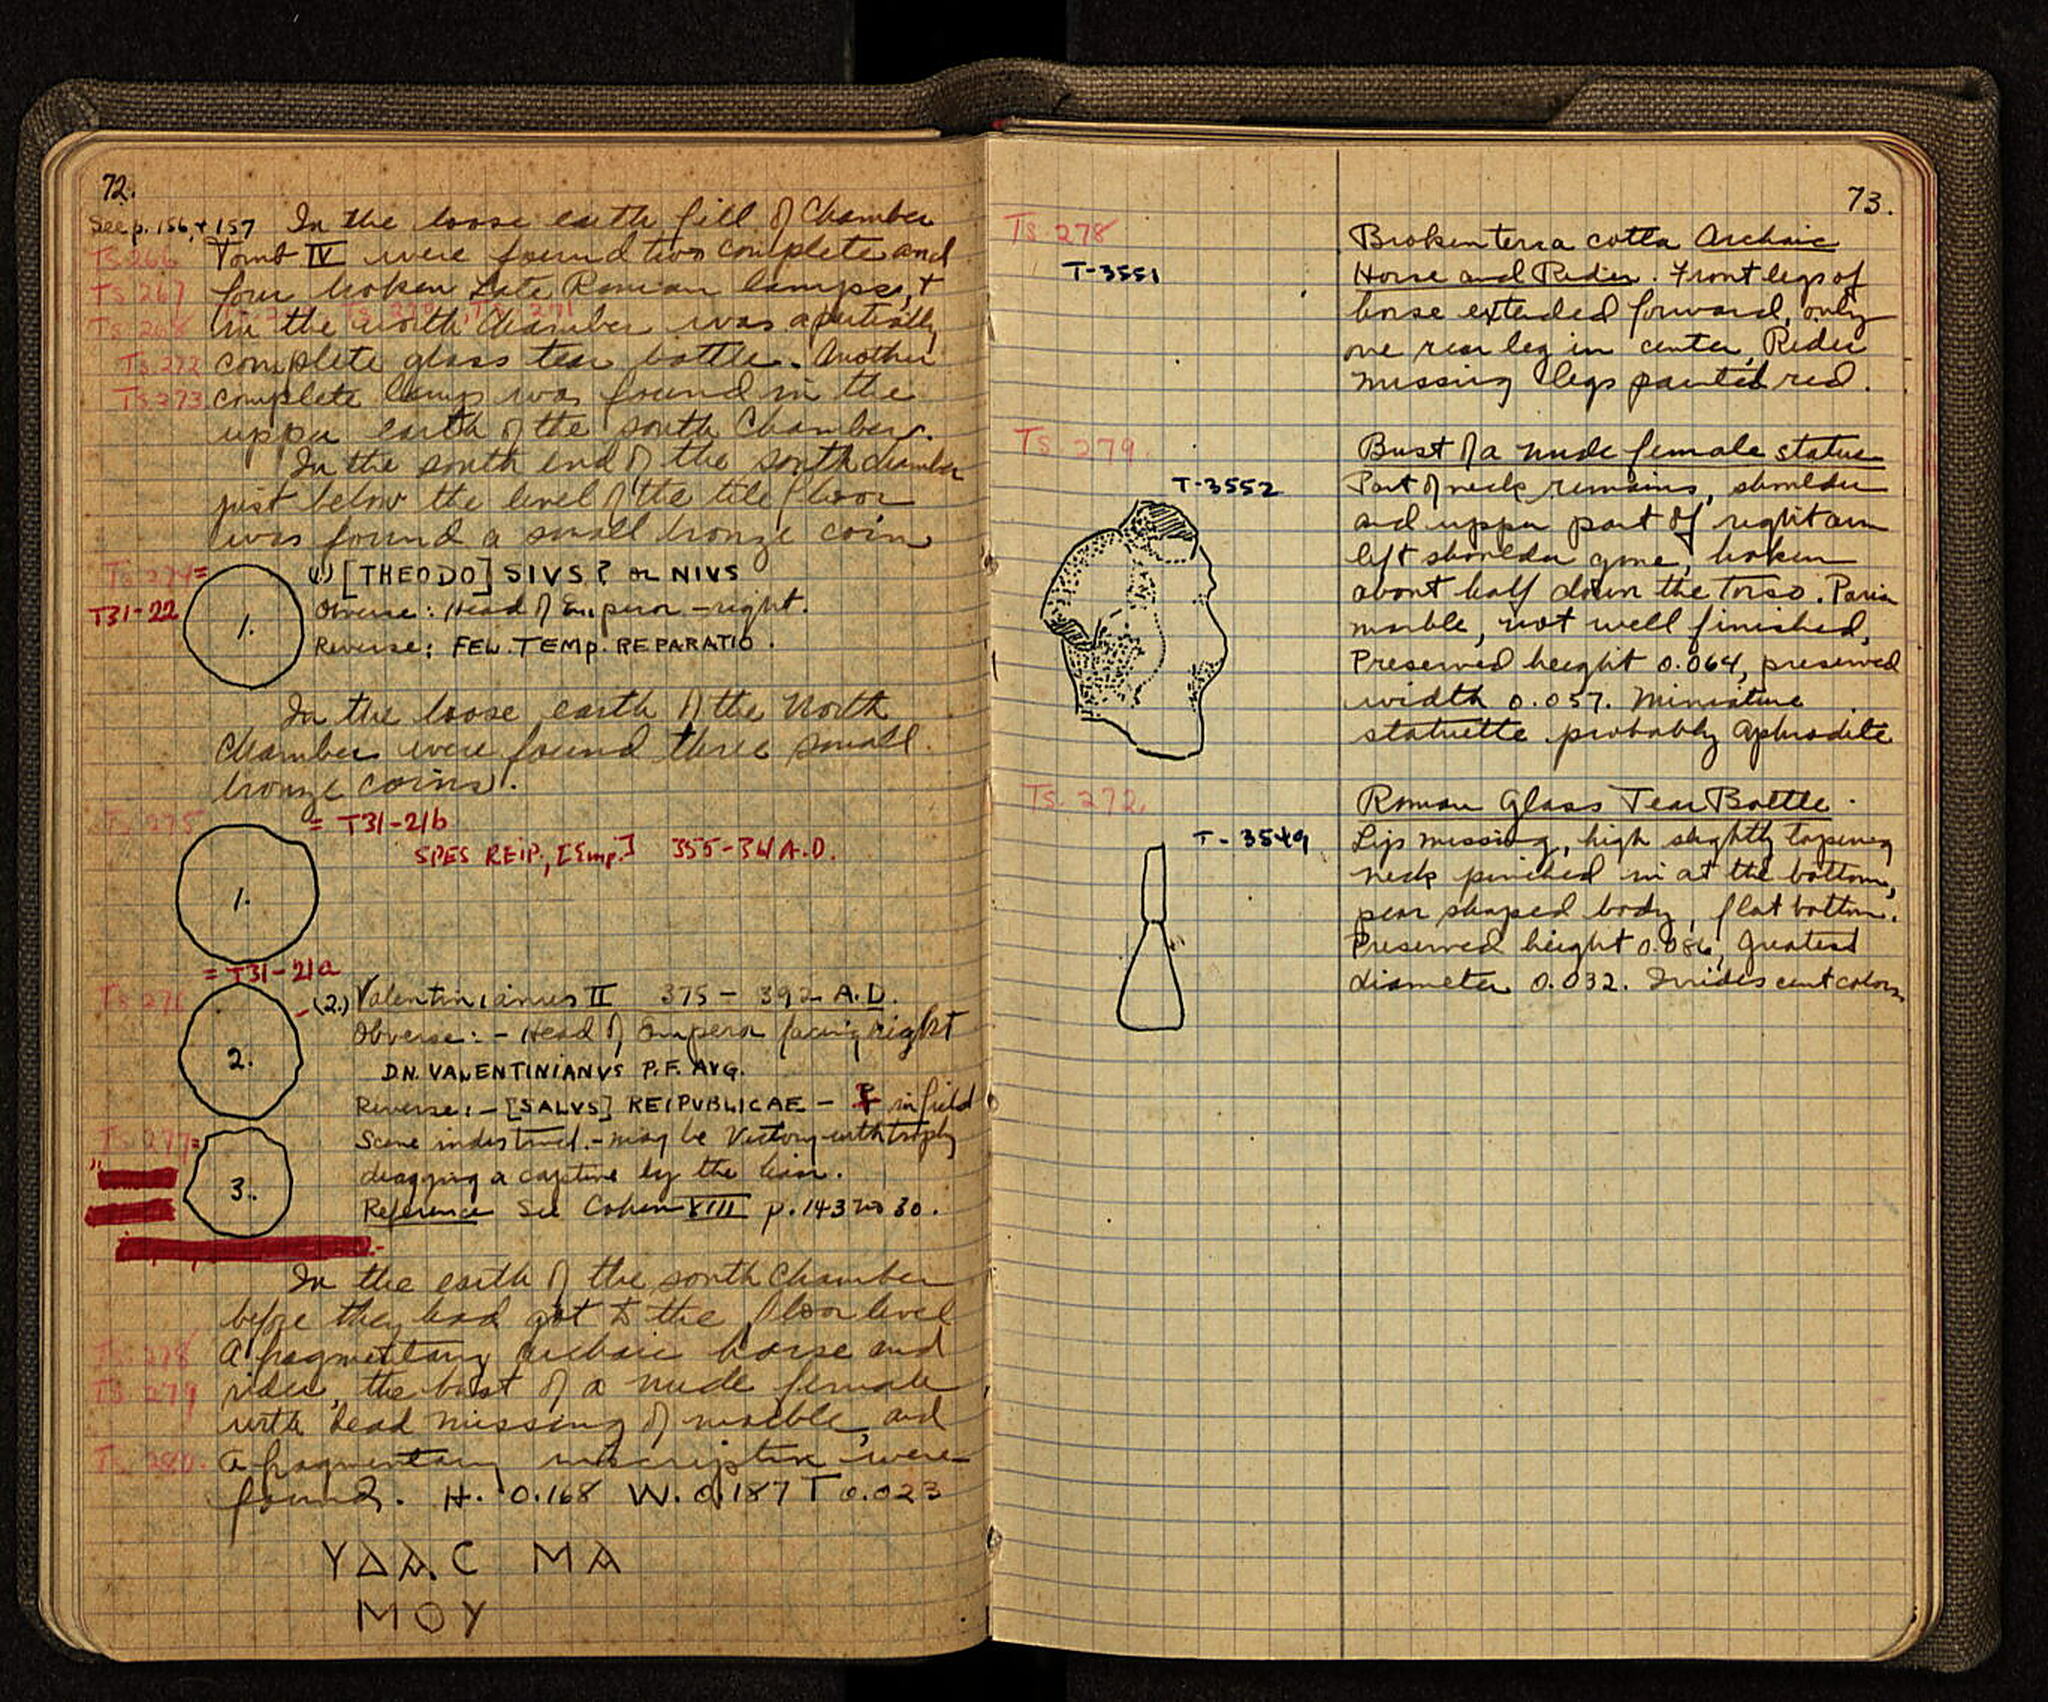 72.
See p. 156, + 157 In the loose earth fill of Chamber
Ts 266 Tomb IV were found two complete and
Ts 267 four broken Late Roman lamps, +
Ts 268 in the north Chamber was a partially
Ts 272 complete glass tear bottle. Another
Ts 273 complete lamp was found in the
upper earth of the south Chamber.
In the south end of the south chamber
just below the level of the tile floor
was found a small bronze coin
Ts 274=
T31-22
1.
(1) [THEODO]SIVS? or NIVS
Obverse: Head of Emperor - right.
Reverse: FEL. TEMP. REPARATIO.
In the loose earth of the North
Chamber were found three small
bronze coins.
Ts 275
= T31-21b
SPES REIP, [Emp.] 355-361 A.D.
1.
= T31-21a
Ts 276
2.
(2.) Valentinianus II 375 - 392 A.D.
Obverse: - Head of Emperor facing right
D.N. VALENTINIANVS P.F. AVG.
Reverse: - [SALVS] REIPUBLICAE - in field
Ts 277=
3.
Scene indistinct. - may be Victory with trophy
dragging a captive by the hair.
Reference See Cohen VIII p. 143 no 30.
In the earth of the south Chamber
before they had got to the floor level
Ts 278 A fragmentary archaic horse and
Ts 279 rider, the bust of a nude female
with head missing of marble, and
Ts 280. a fragmentary inscription were
found. H. 0.168 W. 0.187 T 0.023
ΥΔΑ.C ΜΑ
ΜΟΥ
73.
Ts 278
T-3551
Broken terra cotta Archaic
Horse and Rider. Front legs of
horse extended forward, only
one rear leg in center, Rider
missing legs painted red.
Ts 279.
T-3552
Bust of a nude female statue
Part of neck remains, shoulder
and upper part of right arm
left shoulder gone, broken
about half down the torso. Parian
marble, not well finished,
Preserved height 0.064, preserved
width 0.057. Miniature
statuette probably Aphrodite
Ts. 272.
T-3549
Roman Glass Tear Bottle.
Lips missing, high slightly tapering
neck pinched in at the bottom,
pear shaped body, flat bottom.
Preserved height 0.086, Greatest
diameter 0.032. Iridescent colors